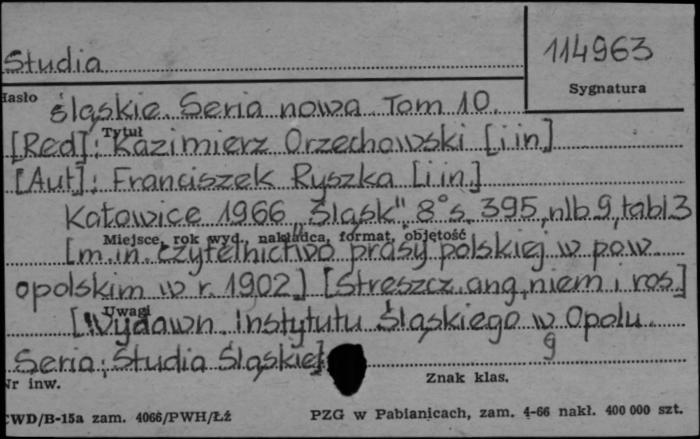 114963
Studia
Sygnatura
Hasło
śląskie. Seria nowa. Tom 10.
Tytuł
[Red]: Kazimierz Orzechowski [i in.]
[Aut]: Franciszek Ryszka [i in.]
Katowice 1966 „Śląsk" 8° s. 395, nlb 9, tabl 3
Miejsce, rok wyd., nakładca, format, objętość
[m.in. czytelnictwo prasy polskiej w pow.
opolskim w r. 1902] [Streszcz. ang, niem i ros.]
Uwagi
[Wydawn. Instytutu Śląskiego w Opolu.
Seria: Studia Śląskie]
9
Nr inw.
Znak klas.
CWD/B-15a zam. 4066/PWH/Łż
PZG w Pabianicach, zam. 4-66 nakł. 400 000 szt.